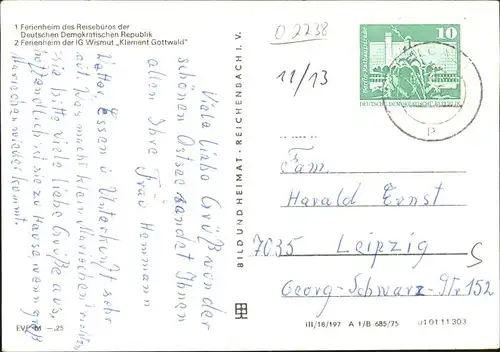 1 Ferienheim des Reisebüros der
Deutschen Demokratischen Republik
2 Ferienheim der IG Wismut „Klement Gottwald"
Viele liebe Grüße von der
schönen Ostsee sendet Ihnen
allen Ihre Frau Herrmann
Wetter, Essen u Unterkunft sehr
gut. Was macht klein
sie bitte viele liebe Grüße aus,
ist sie zu Hause wenn
wieder kommt.
EVP M –,25
BILD UND HEIMAT · REICHENBACH I. V.
O 2238
11/13
10
DEUTSCHE DEMOKRATISCHE REPUBLIK
Fam.
Harald Ernst
7035 Leipzig
Georg-Schwarz-Str 152
III/18/197 A 1/B 685/75 01 01 11 303